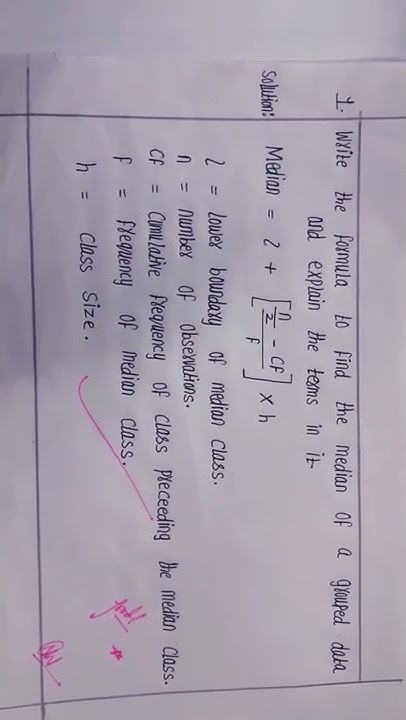 1. Write the formula to find the median of a grouped data
and explain the terms in it
Solution: Median = l + [n/2 - CF / f] × h
l = lower boundary of median class.
n = number of observations.
CF = Cumulative frequency of class preceeding the median class.
f = frequency of median class.
h = class size.